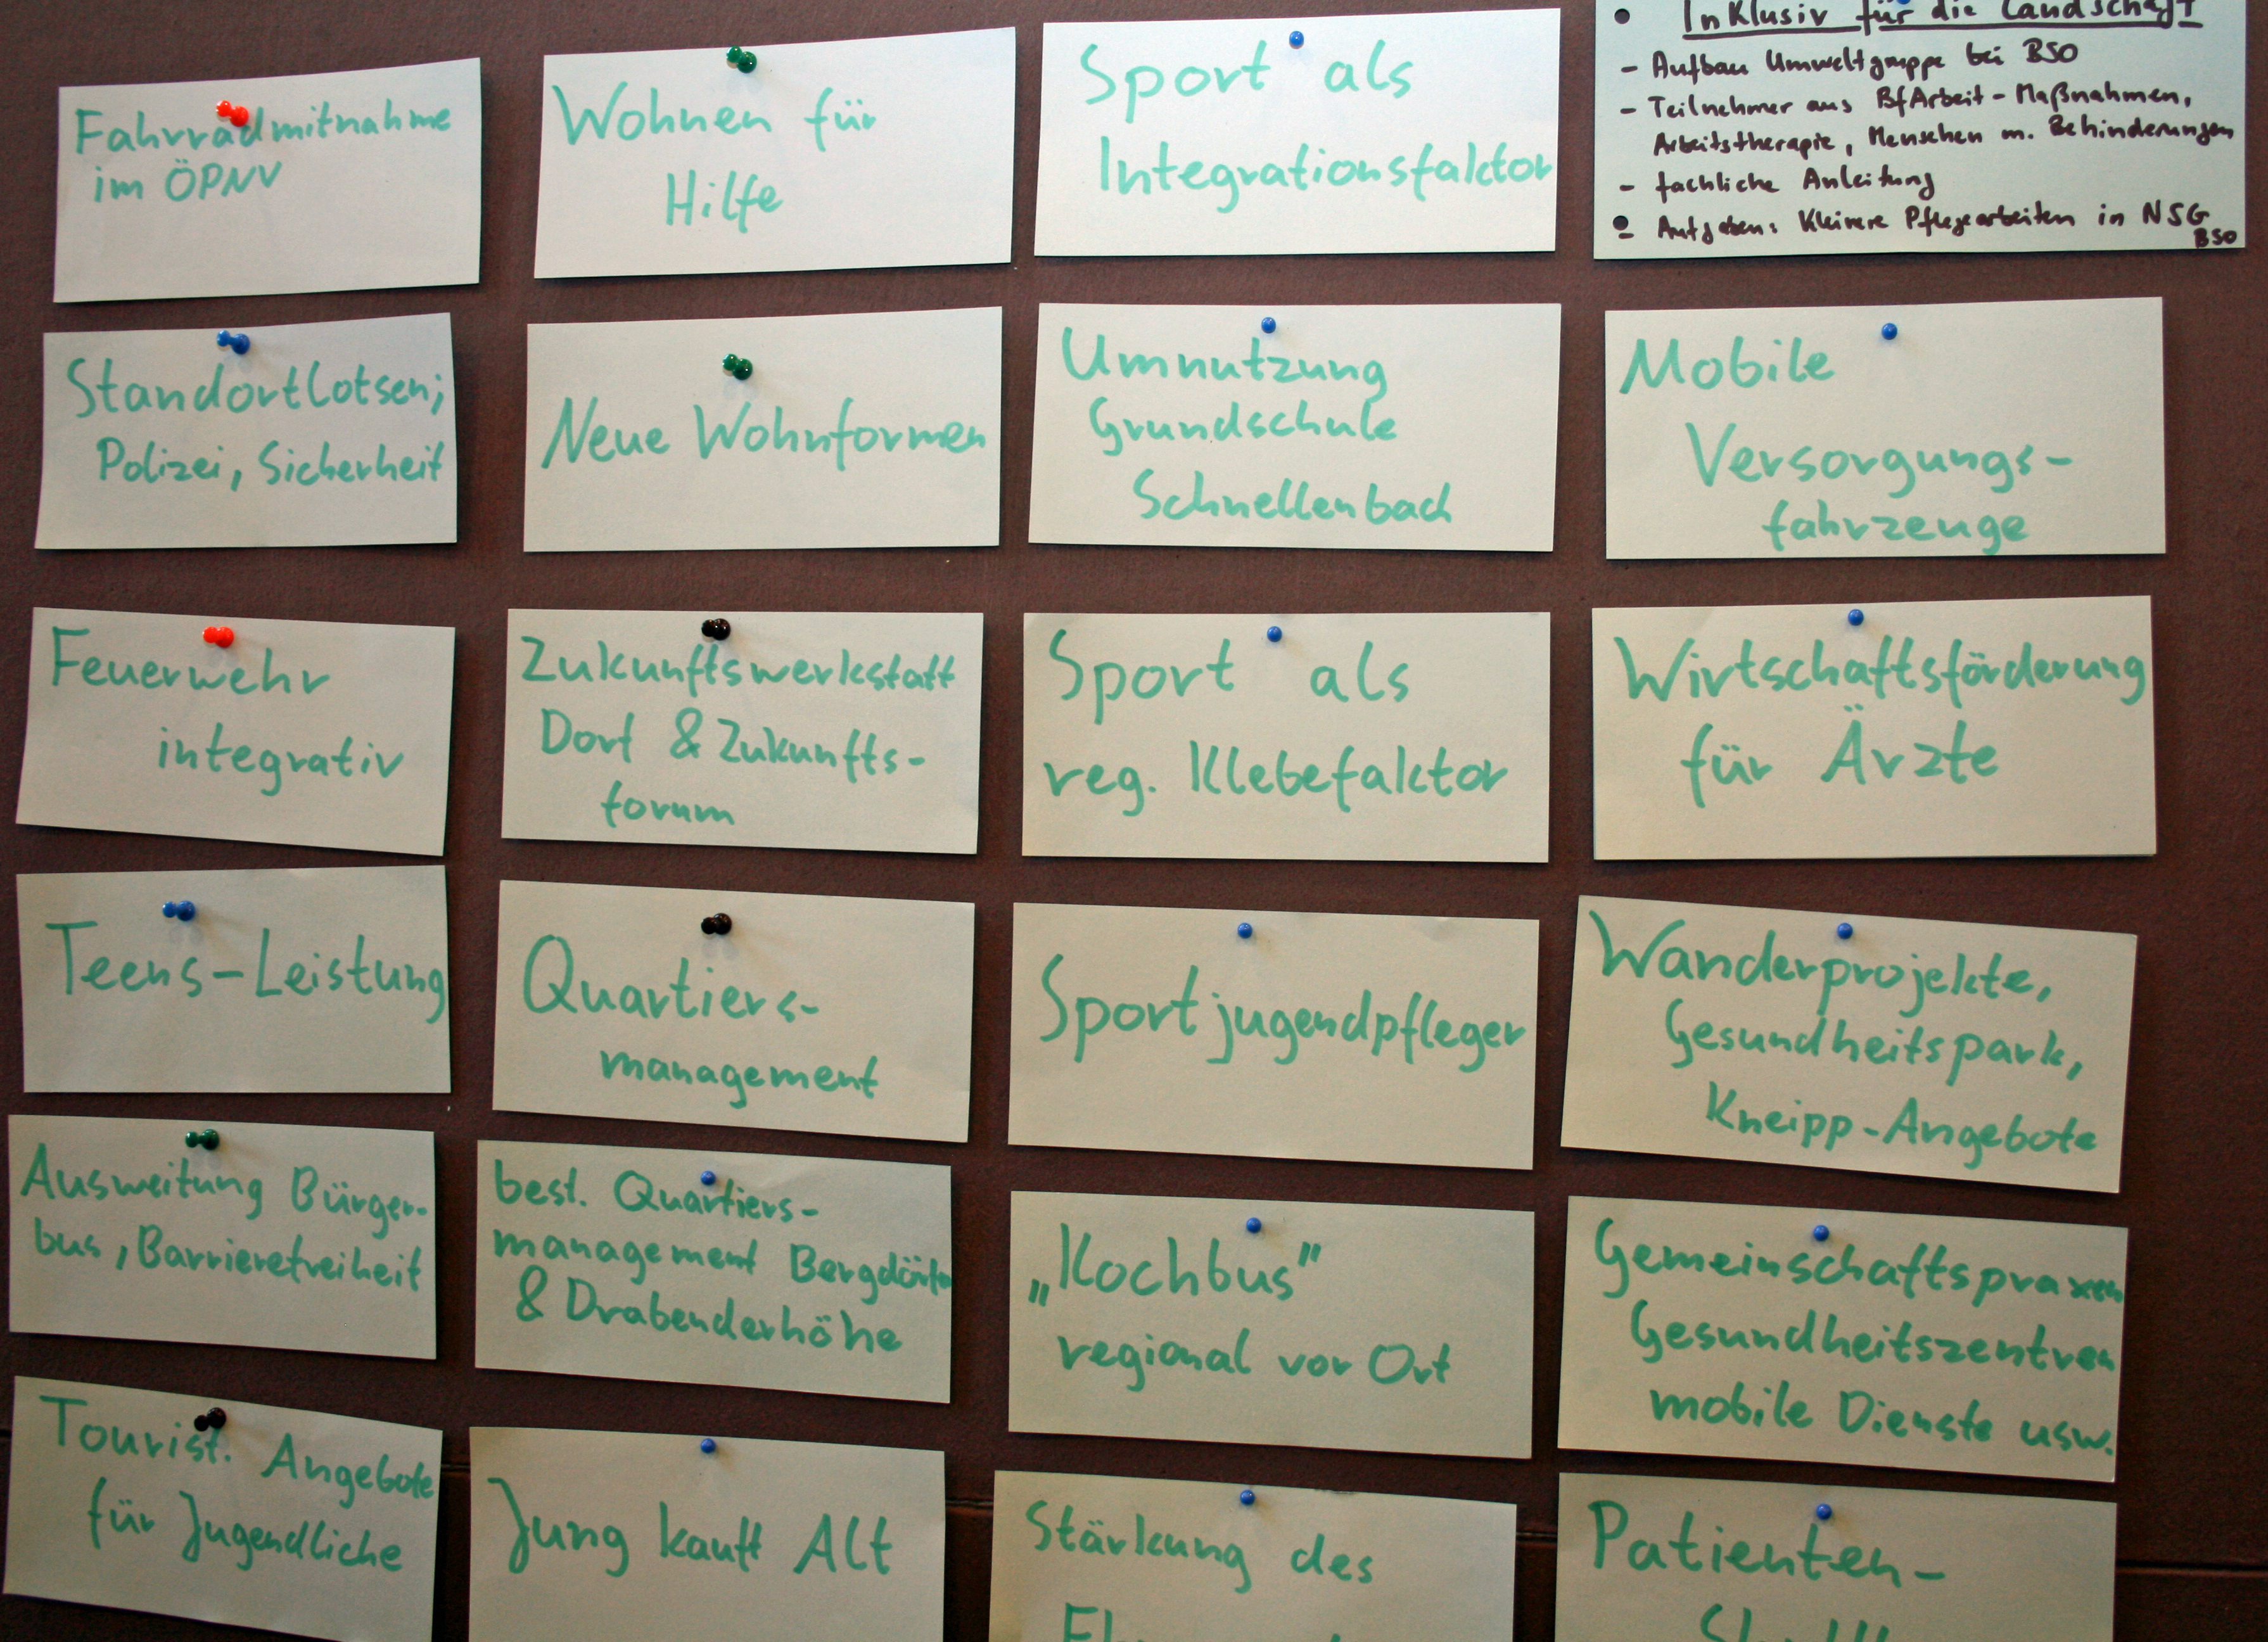 Fahrradmitnahme
im ÖPNV
Standortlotsen;
Polizei, Sicherheit
Feuerwehr
integrativ
Teens-Leistung
Ausweitung Bürger-
bus, Barrierefreiheit
Tourist. Angebote
für Jugendliche
Wohnen für
Hilfe
Neue Wohnformen
Zukunftswerkstatt
Dorf & Zukunfts-
forum
Quartiers-
management
best. Quartiers-
management Bergdörfer
& Drabenderhöhe
Jung kauft Alt
Sport als
Integrationsfaktor
Umnutzung
Grundschule
Schnellenbach
Sport als
reg. Klebefaktor
Sportjugendpfleger
„Kochbus"
regional vor Ort
Stärkung des
Inklusiv für die Landschaft
- Aufbau Umweltgruppe bei BSO
- Teilnehmer aus BfArbeit-Maßnahmen,
Arbeitstherapie, Menschen m. Behinderungen
- fachliche Anleitung
- Aufgaben: Kleinere Pflegearbeiten in NSG
BSO
Mobile
Versorgungs-
fahrzeuge
Wirtschaftsförderung
für Ärzte
Wanderprojekte,
Gesundheitspark,
Kneipp-Angebote
Gemeinschaftspraxen
Gesundheitszentren
mobile Dienste usw.
Patienten-